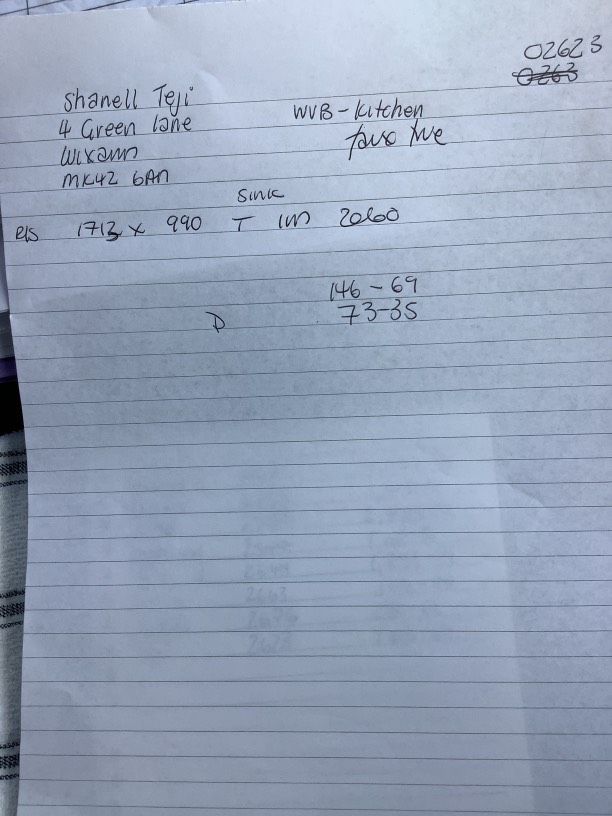 02623
0263
Shanell Teji
4 Green lane
WVB - Kitchen
Wixamm
MK42 6AN
Sink
els 1713 x 990 T 1m 2060
146 - 69
73-35
D